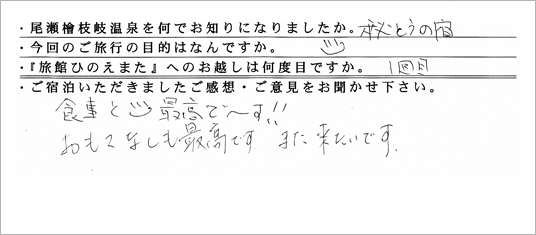 ・尾瀬檜枝岐温泉を何でお知りになりましたか。秘とうの宿
・今回のご旅行の目的はなんですか。
・『旅館ひのえまた』へのお越しは何度目ですか。 1回目
・ご宿泊いただきましたご感想・ご意見をお聞かせ下さい。
食事と 最高で〜す!!
おもてなしも最高です また来たいです。